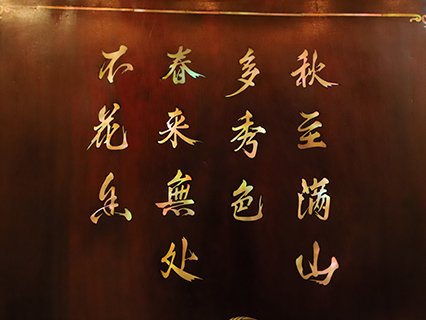 秋至满山
多秀色
春来無处
不花香